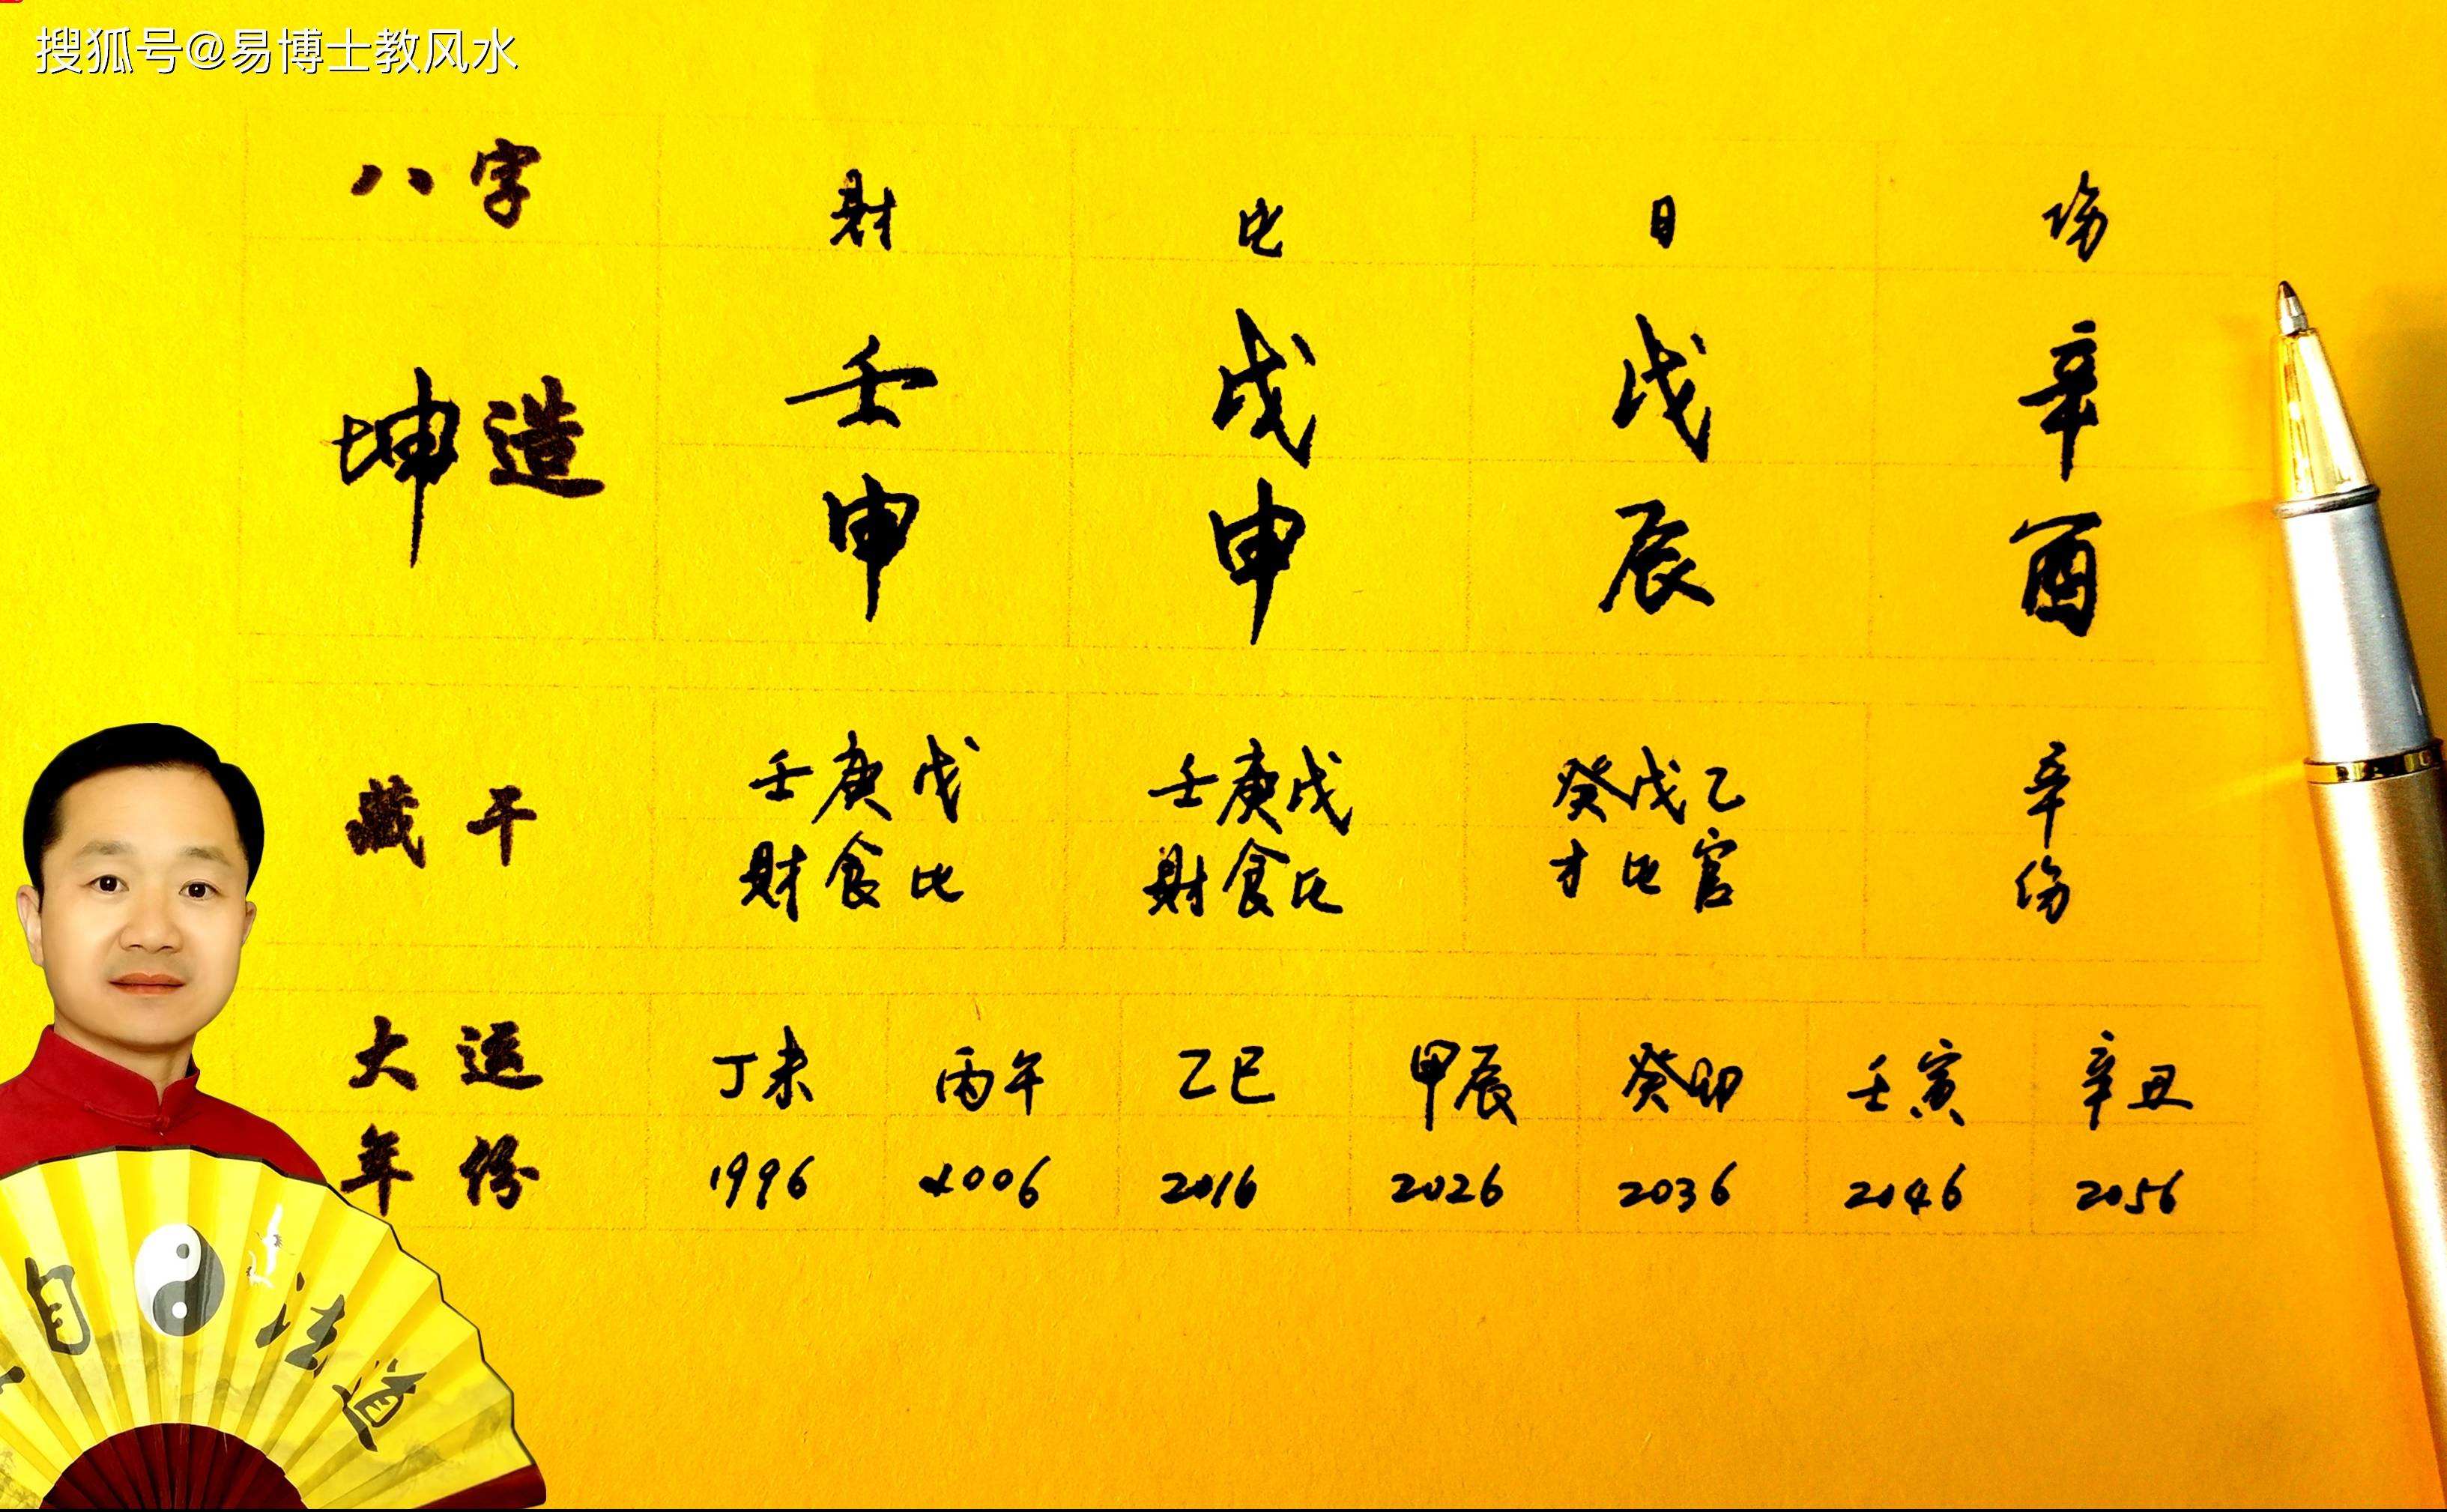 搜狐号@易博士教风水
八字 财 比 日 伤
坤造 壬 戊 戊 辛
申 申 辰 酉
藏干 壬庚戊 壬庚戊 癸戊乙 辛
财食比 财食比 才比官 伤
大运 丁未 丙午 乙巳 甲辰 癸卯 壬寅 辛丑
年份 1996 2006 2016 2026 2036 2046 2056
自 法 道